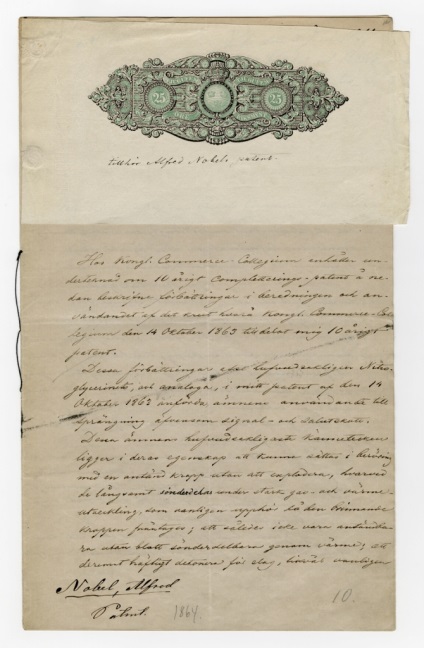 25 25
tillhör Alfred Nobels patent.
Hos Kongl. Commerce-Collegium anhåller un-
dertecknad om 10 årigt Completterings-patent å ne-
dan beskrifne förbättringar i beredningen och an-
vändandet af det krut hvarå Kongl. Commerce-Col-
legium den 14 Oktober 1863 tilldelat mig 10 årigt
patent.
Dessa förbättringar afse hufvudsakligen Nitro-
glycerinets, och analoga, i mitt patent af den 14
Oktober 1863 anförda ämnens användande till
sprängning äfvensom signal- och salutskott.
Dessa ämnens hufvudsakligaste kännetecken
ligger i deras egenskap att kunna sättas i beröring
med en antänd kropp utan att explodera, hvarvid
de långsamt sönderdelas under stark gas- och värme-
utveckling, som vanligen upphör då den brinnande
kroppen frånlages; att således icke vara antändba-
ra utan blott sönderdelbara genom värme; att
deremot häftigt detonera för slag, hvarvid vanligen
Nobel, Alfred
Patent. 1864. 10.